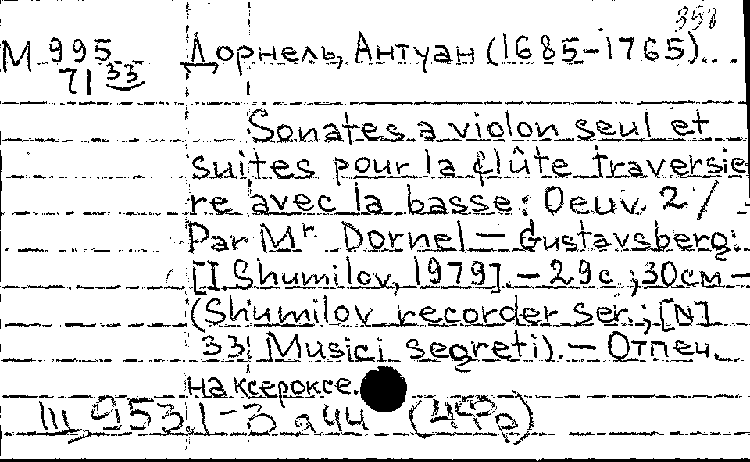 358
М 995 Дорнель, Антуан (1685-1765)...
71 33
Sonates a violon seul et
suites pour la flûte traversie
re avec la basse: Oeuv. 2 /
Par Mr Dornel — Gustavsberg:
[I. Shumilov, 1979]. — 29с.; 30см —
(Shumilov recorder ser.; [N]
33: Musici segreti). — Отпеч.
на ксероксе.
Ш 953.1-3 я44 (4Фр)